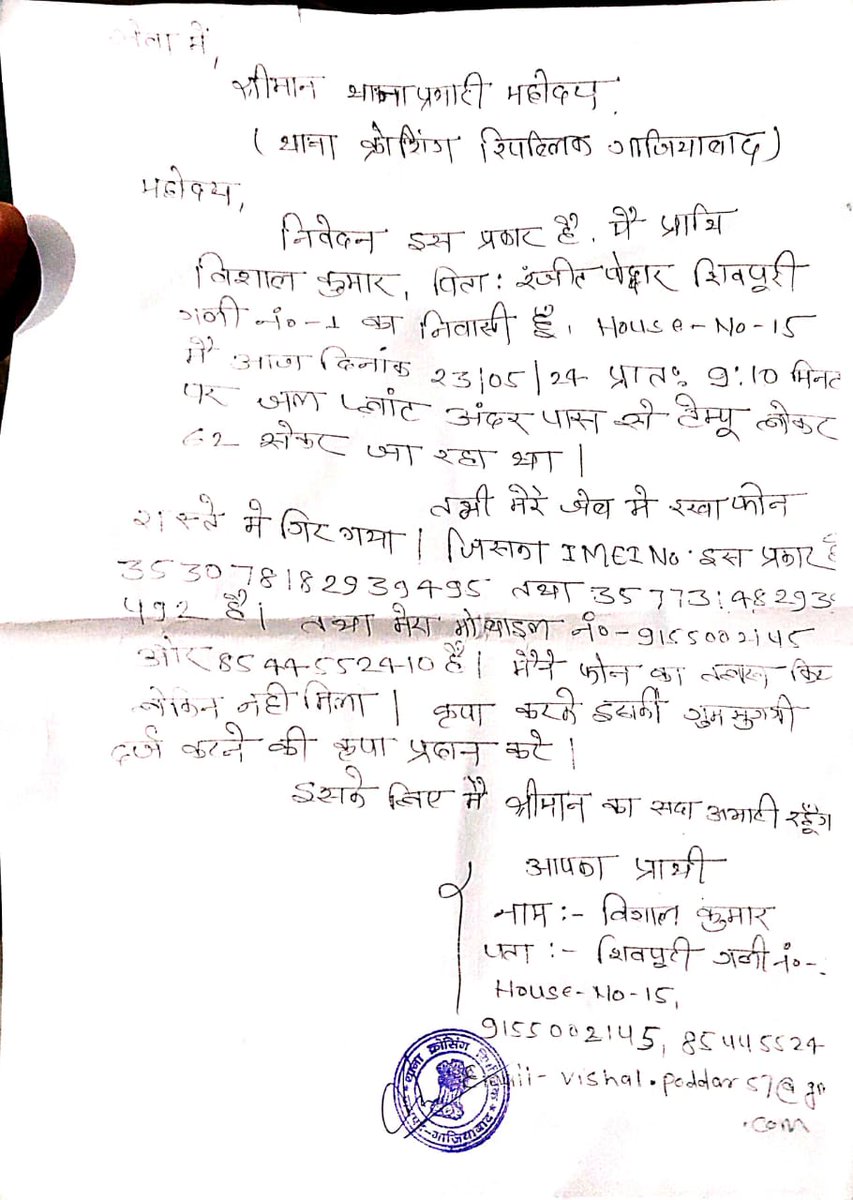 सेवा में,
श्रीमान थानाप्रभारी महोदय
( थाना क्रोसिंग रिपब्लिक गाजियाबाद )
महोदय,
निवेदन इस प्रकार है. मैं प्रार्थि
विशाल कुमार, पिता: रंजीत पोद्दार शिवपूरी
गली नं०-1 का निवासी हूँ। House-No-15
मैं आज दिनांक 23/05/24 प्रात: 9:10 मिनट
पर जल प्लांट अंडर पास से टेम्पू लेकर
62 सेक्टर जा रहा था।
तभी मेरे जेब मे रखा फोन
रास्ते मे गिर गया। जिसका IMEI No. इस प्रकार है
353078182939495 तथा 35773148293
492 है। तथा मेरा मोबाइल नं०-9155002145
और 8544552410 है। मैने फोन का तलाश कि
लेकिन नही मिला। कृपा करके इसकी गुमसुगत्री
दर्ज करने की कृपा प्रदान करे।
इसके लिए मैं श्रीमान का सदा अभारी रहूँग
आपका प्रार्थी
नाम :- विशाल कुमार
पता :- शिवपूरी गली नं०-
House-No-15,
9155002145, 85445524
vishal.poddar57@gm
.com
थाना क्रोसिंग रिपब्लिक
गाजियाबाद